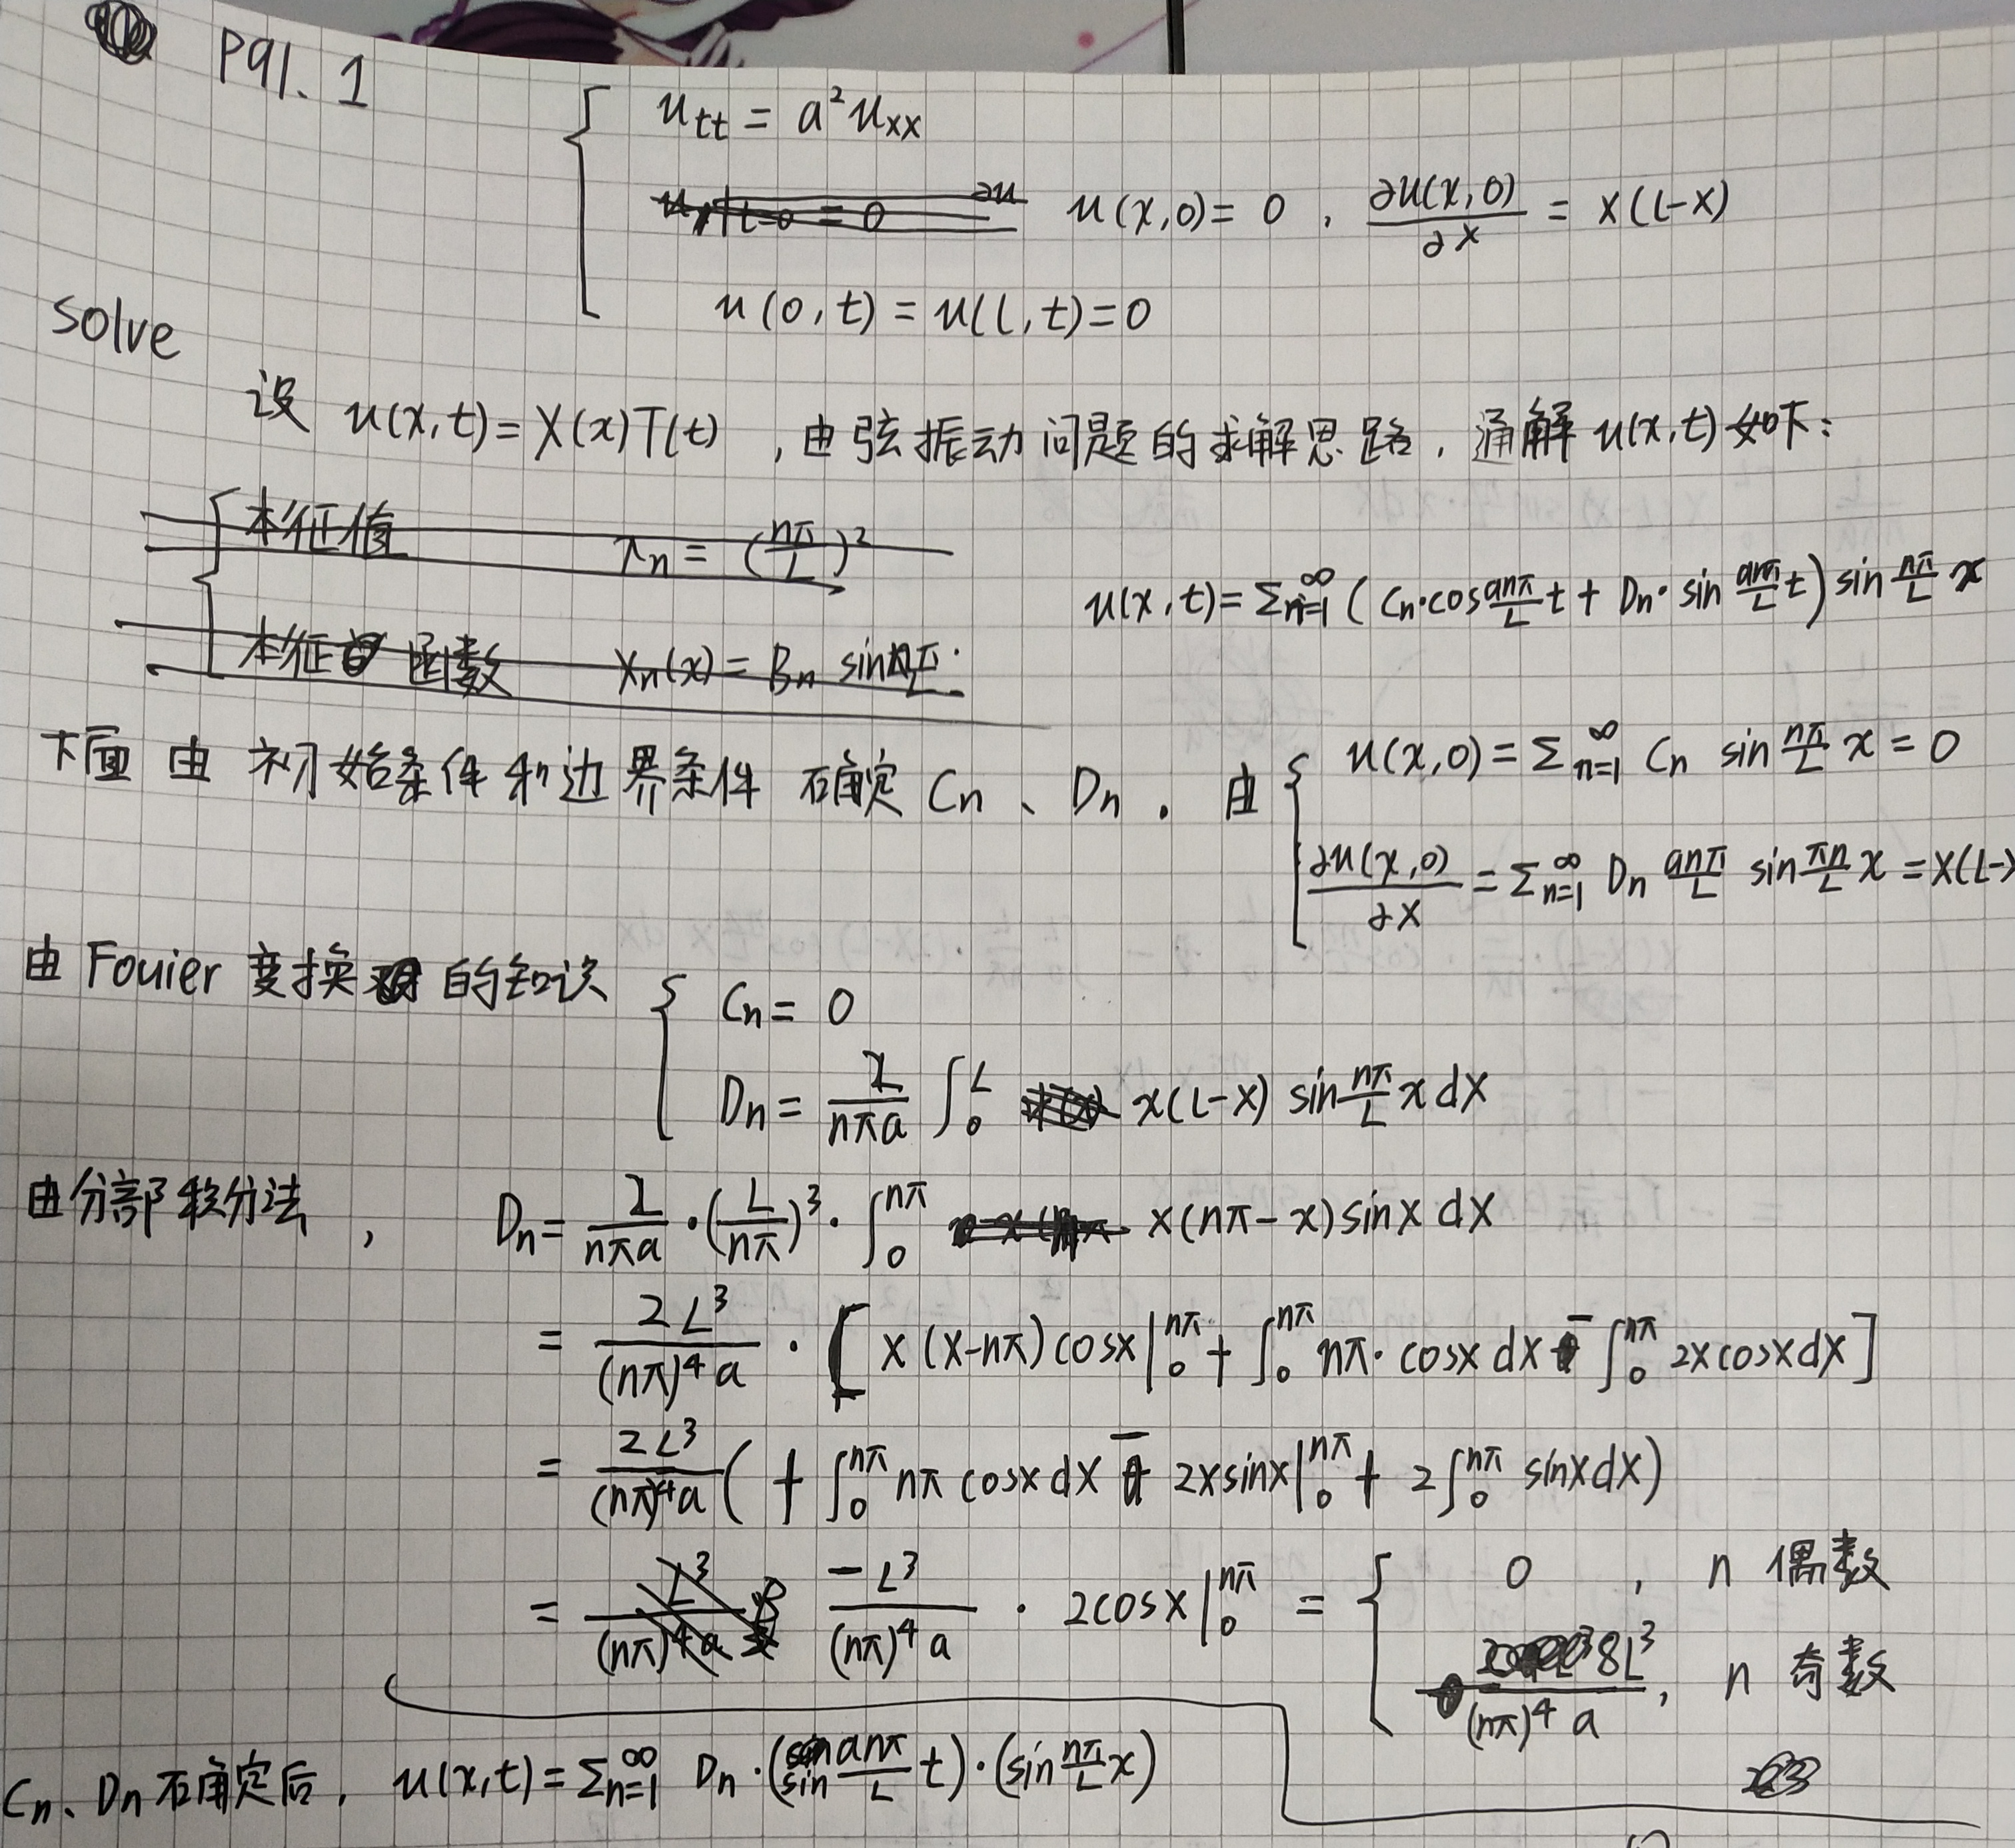 P91. 1
u_tt = a²u_xx
u(x,0)= 0 , ∂u(x,0)/∂x = x(L-x)
u(0,t) = u(L,t)=0
solve
设 u(x,t)= X(x)T(t) ,由弦振动问题的求解思路,通解 u(x,t) 如下:
本征值 λn = (nπ/L)²
本征函数 Xn(x) = Bn sin nπ/L
u(x,t)= Σ_{n=1}^∞ ( Cn·cos anπ/L t + Dn· sin anπ/L t ) sin nπ/L x
下面 由 初始条件和边界条件 确定 Cn 、 Dn . 由 { u(x,0) = Σ_{n=1}^∞ Cn sin nπ/L x = 0
∂u(x,0)/∂x = Σ_{n=1}^∞ Dn anπ/L sin πn/L x = x(L-
由 Fouier 变换的知识 { Cn = 0
Dn = 2/(nπa) ∫_0^L x(L-x) sin nπ/L x dx
由分部积分法 , Dn = 2/(nπa) · (L/nπ)³ · ∫_0^{nπ} x(nπ-x) sinx dx
= 2L³/((nπ)⁴a) · [ x(x-nπ) cosx |_0^{nπ} + ∫_0^{nπ} nπ· cosx dx - ∫_0^{nπ} 2xcosxdx ]
= 2L³/((nπ)⁴a) ( + ∫_0^{nπ} nπ cosx dx - 2xsinx |_0^{nπ} + 2∫_0^{nπ} sinxdx )
= -L³/((nπ)⁴a) · 2cosx |_0^{nπ} = { 0 , n 偶数
8L³/((nπ)⁴a) , n 奇数
Cn、Dn 确定后, u(x,t) = Σ_{n=1}^∞ Dn · (sin anπ/L t) · (sin nπ/L x)